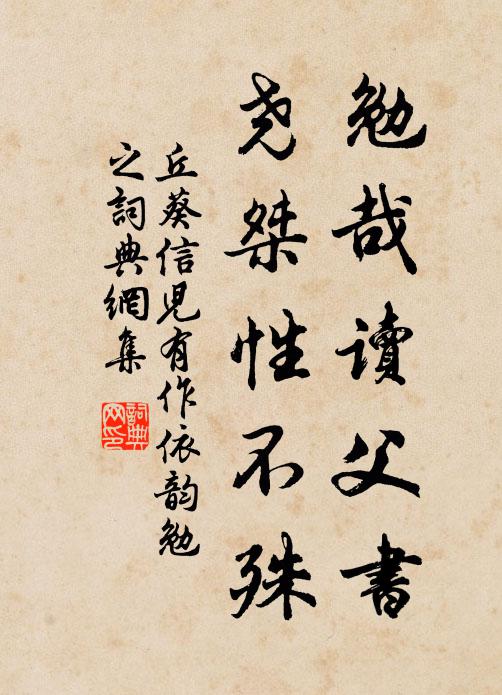 勉哉讀父書
尧桀性不殊
丘葵信児有作依韵勉
之詞典網集
詞典网印